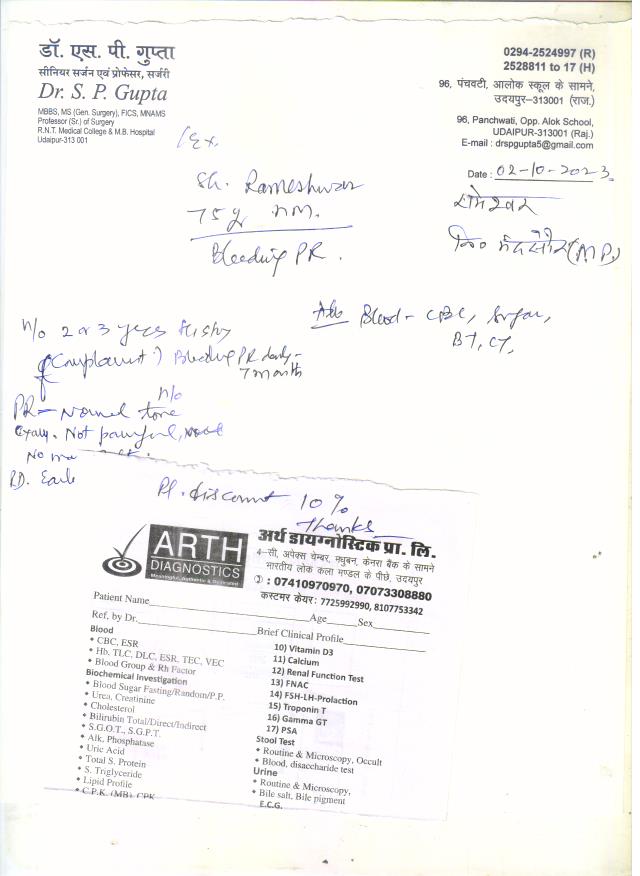 डॉ. एस. पी. गुप्ता
सीनियर सर्जन एवं प्रोफेसर, सर्जरी
Dr. S. P. Gupta
MBBS, MS (Gen. Surgery), FICS, MNAMS
Professor (Sr.) of Surgery
R.N.T. Medical College & M.B. Hospital
Udaipur-313 001
0294-2524997 (R)
2528811 to 17 (H)
96, पंचवटी, आलोक स्कूल के सामने,
उदयपुर-313001 (राज.)
96, Panchwati, Opp. Alok School,
UDAIPUR-313001 (Raj.)
E-mail : drspgupta5@gmail.com
Date : 02-10-2023
Sh. Rameshwar
75y
Bleeding PR.
रामेश्वर
मंदसौर (MP)
Blood - CBC, Sugar,
BT, CT,
2 or 3 years
(Complaint) Bleeding PR daily -
7 month
PR - Normal tone
Not painful,
No
Pl. discount 10%
Thanks
ARTH
DIAGNOSTICS
Meaningful, Authentic & Dedicated
अर्थ डायग्नोस्टिक प्रा. लि.
4-सी, अपेक्स चेम्बर, मधुबन, केनरा बैंक के सामने
भारतीय लोक कला मण्डल के पीछे, उदयपुर
: 07410970970, 07073308880
कस्टमर केयर: 7725992990, 8107753342
Patient Name
Age Sex
Ref, by Dr.
Brief Clinical Profile
Blood
• CBC, ESR
• Hb. TLC, DLC, ESR, TEC, VEC
• Blood Group & Rh Factor
Biochemical Investigation
• Blood Sugar Fasting/Random/P.P.
• Urea, Creatinine
• Cholesterol
• Bilirubin Total/Direct/Indirect
• S.G.O.T., S.G.P.T.
• Alk. Phosphatase
• Uric Acid
• Total S. Protein
• S. Triglyceride
• Lipid Profile
• C.P.K. (MB) CPK
10) Vitamin D3
11) Calcium
12) Renal Function Test
13) FNAC
14) FSH-LH-Prolaction
15) Troponin T
16) Gamma GT
17) PSA
Stool Test
• Routine & Microscopy, Occult
• Blood, disaccharide test
Urine
• Routine & Microscopy,
• Bile salt, Bile pigment
E.C.G.